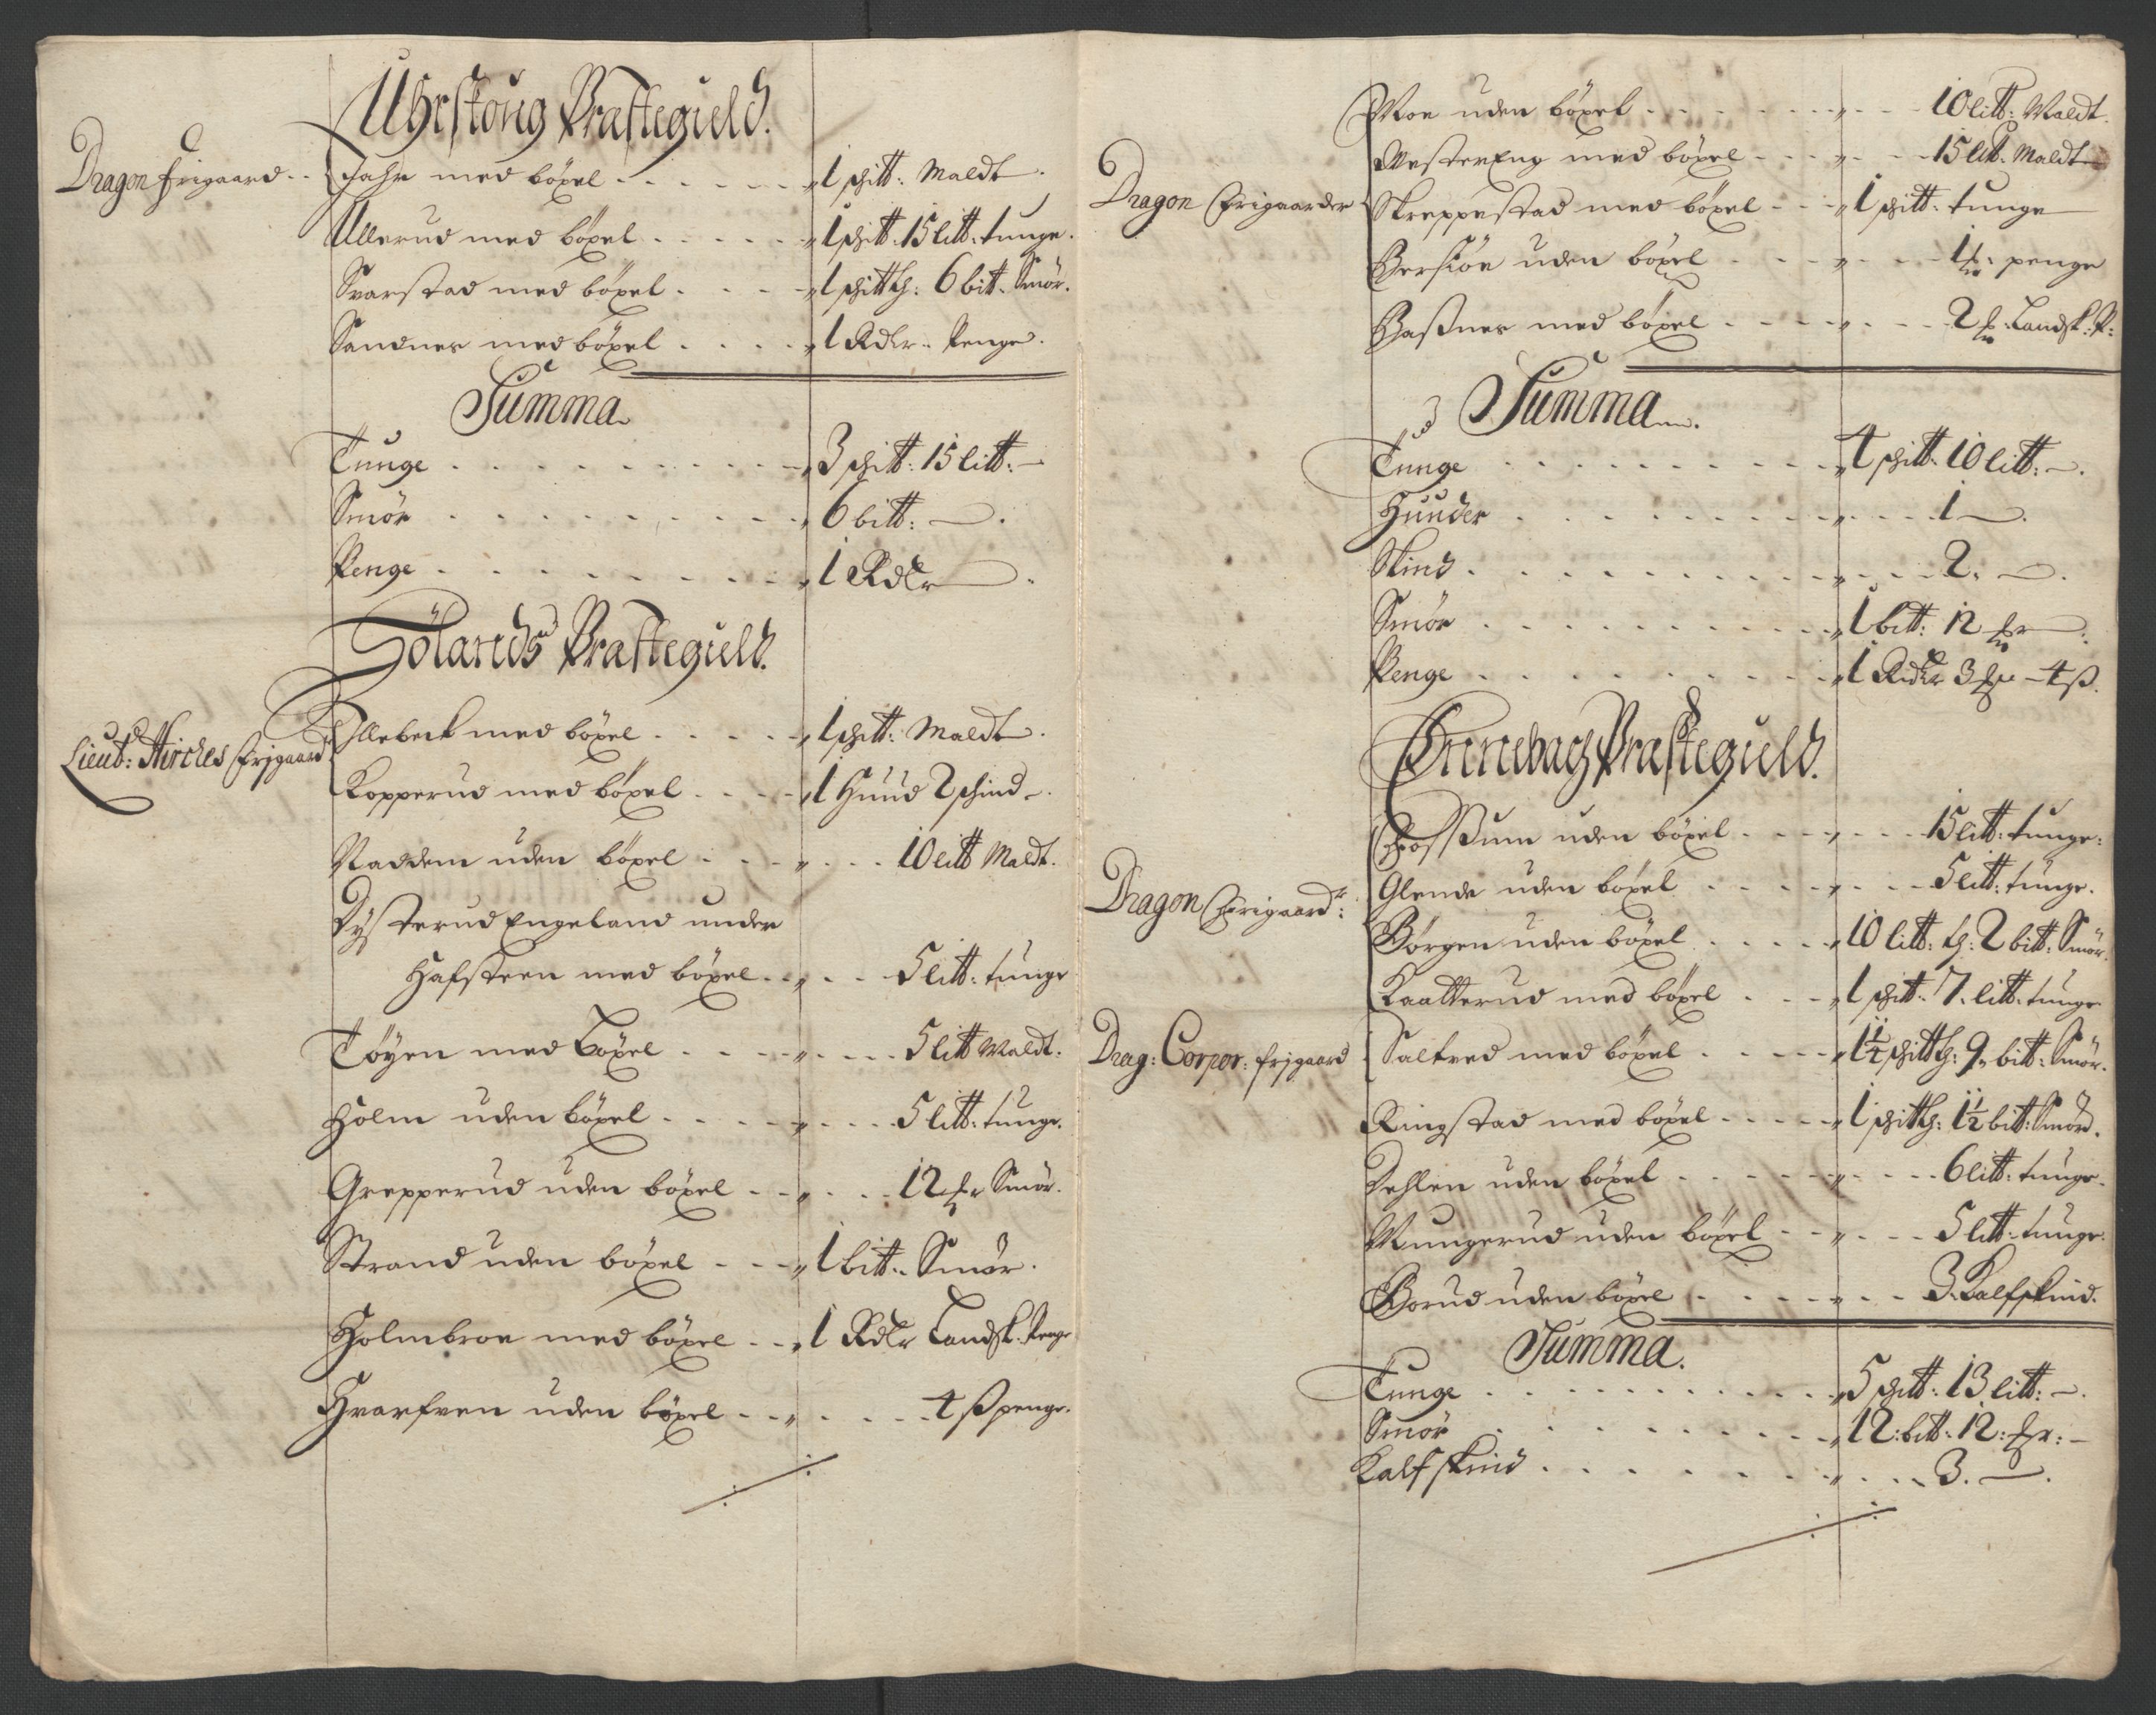 Uhrskoug Præstegield.
Dragon frigaard - - Jahr med böxel - - - - - 1 schitt: Maldt.
Ullerud med böxel - - - - 1 schitt: 15 litt: tunge.
Svarstad med böxel - - - - 1 schitt tg: 6 bitt: Smör.
Sandnes med böxel - - - - 1 Rdlr: Penge.
Summa
Tunge - - - - 3 schitt: 15 litt: —
Smör - - - - 6 bitt: —.
Penge - - - - 1 Rdlr —.
Hölands Præstegield.
Lieut: Hirches frjgaard Ellebech med böxel - - - - 1 schitt: Maldt.
Kopperud med böxel - - - - 1 Huud 2 schind -.
Naddem uden böxel - - - - 10 litt Maldt.
Dysterud Engeland under
Hafsteen med böxel - - - - 5 litt: tunge
Töyen med Böxel - - - - 5 litt Maldt.
Holm uden böxel - - - - 5 litt: tunge.
Grepperud uden böxel - - - - 12 mr Smör.
Strand uden böxel - - - 1 bitt: Smör.
Holmbroe med böxel - - 1 Rdlr Landsk: Penge
Hvarfven uden böxel - - - - 4 ß penge.
Moe uden böxel - - - - 10 litt: Maldt.
WesterEng med böxel - - - - 15 litt: Maldt
Dragon Frigaarder Skreppestad med böxel - - 1 schitt: tunge
Bersiöe uden böxel - - - - 1 mr: penge
Haßnes med böxel - - - - 2 mr: Landsk: P:
Summa
Tunge - - - - 4 schitt: 10 litt: —.
Huuder - - - - 1 —.
Skind - - - - 2. —.
Smör - - - - 1 bitt: 12 mr —:
Penge - - - - 1 Rdlr 3 mr — 4 ß.
Ennebach Præstegield.
Foßum uden böxel - - - - 15 litt: tunge:
Dragon Frigaardr: Glende uden böxel - - - - 5 litt: tunge.
Börgen uden böxel - - - - 10 litt: tg: 2 bitt: Smör.
Kaatterud med böxel - - - 1 schitt: 7. litt: tunge
Drag: Corpor: frjgaard Saltved med böxel - - - - 1¼ schitt tg: 9 bitt: Smör.
Ringstad med böxel - - - - 1 schitt tg: 1½ bitt: Smör.
Dehlen uden böxel - - - - 6 litt: tunge.
Mungerud uden böxel - - - - 5 litt: tunge.
Borud uden böxel - - - - 3. Kalfskind.
Summa.
Tunge - - - - 5 schitt: 13 litt: —.
Smör - - - - 12: bitt: 12: mr: —
Kalfskind - - - - 3. —.